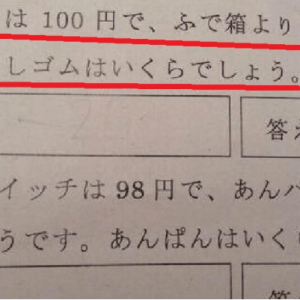 は 100 円で、ふで箱より
しゴムはいくらでしょう。
答え
イッチは 98 円で、あんパ
うです。あんぱんはいく